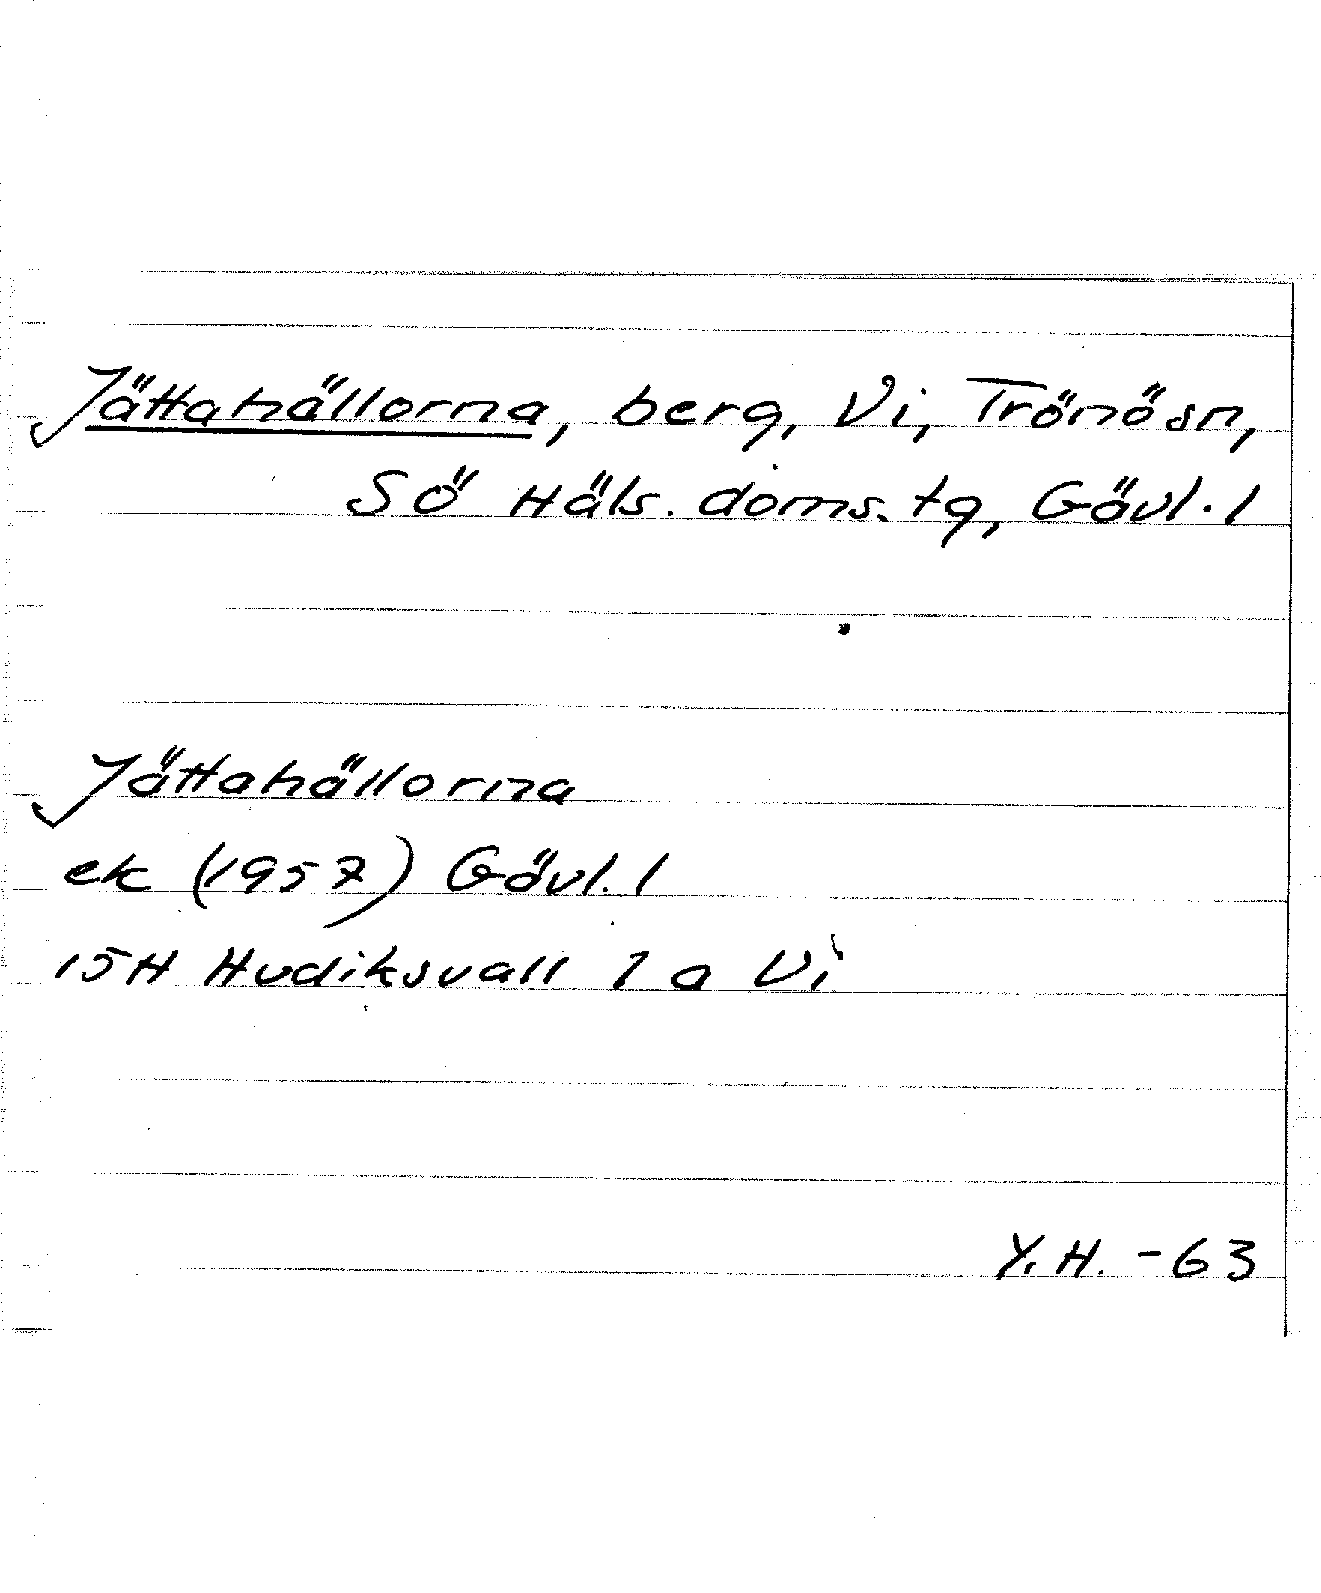 Jättahällorna, berg, Vi, Trönösn,
Sö Häls. doms. tg, Gävl. l
Jättahällorna
ek (1957) Gävl. l
15H Hudiksvall 1 a Vi
Y. H. -63